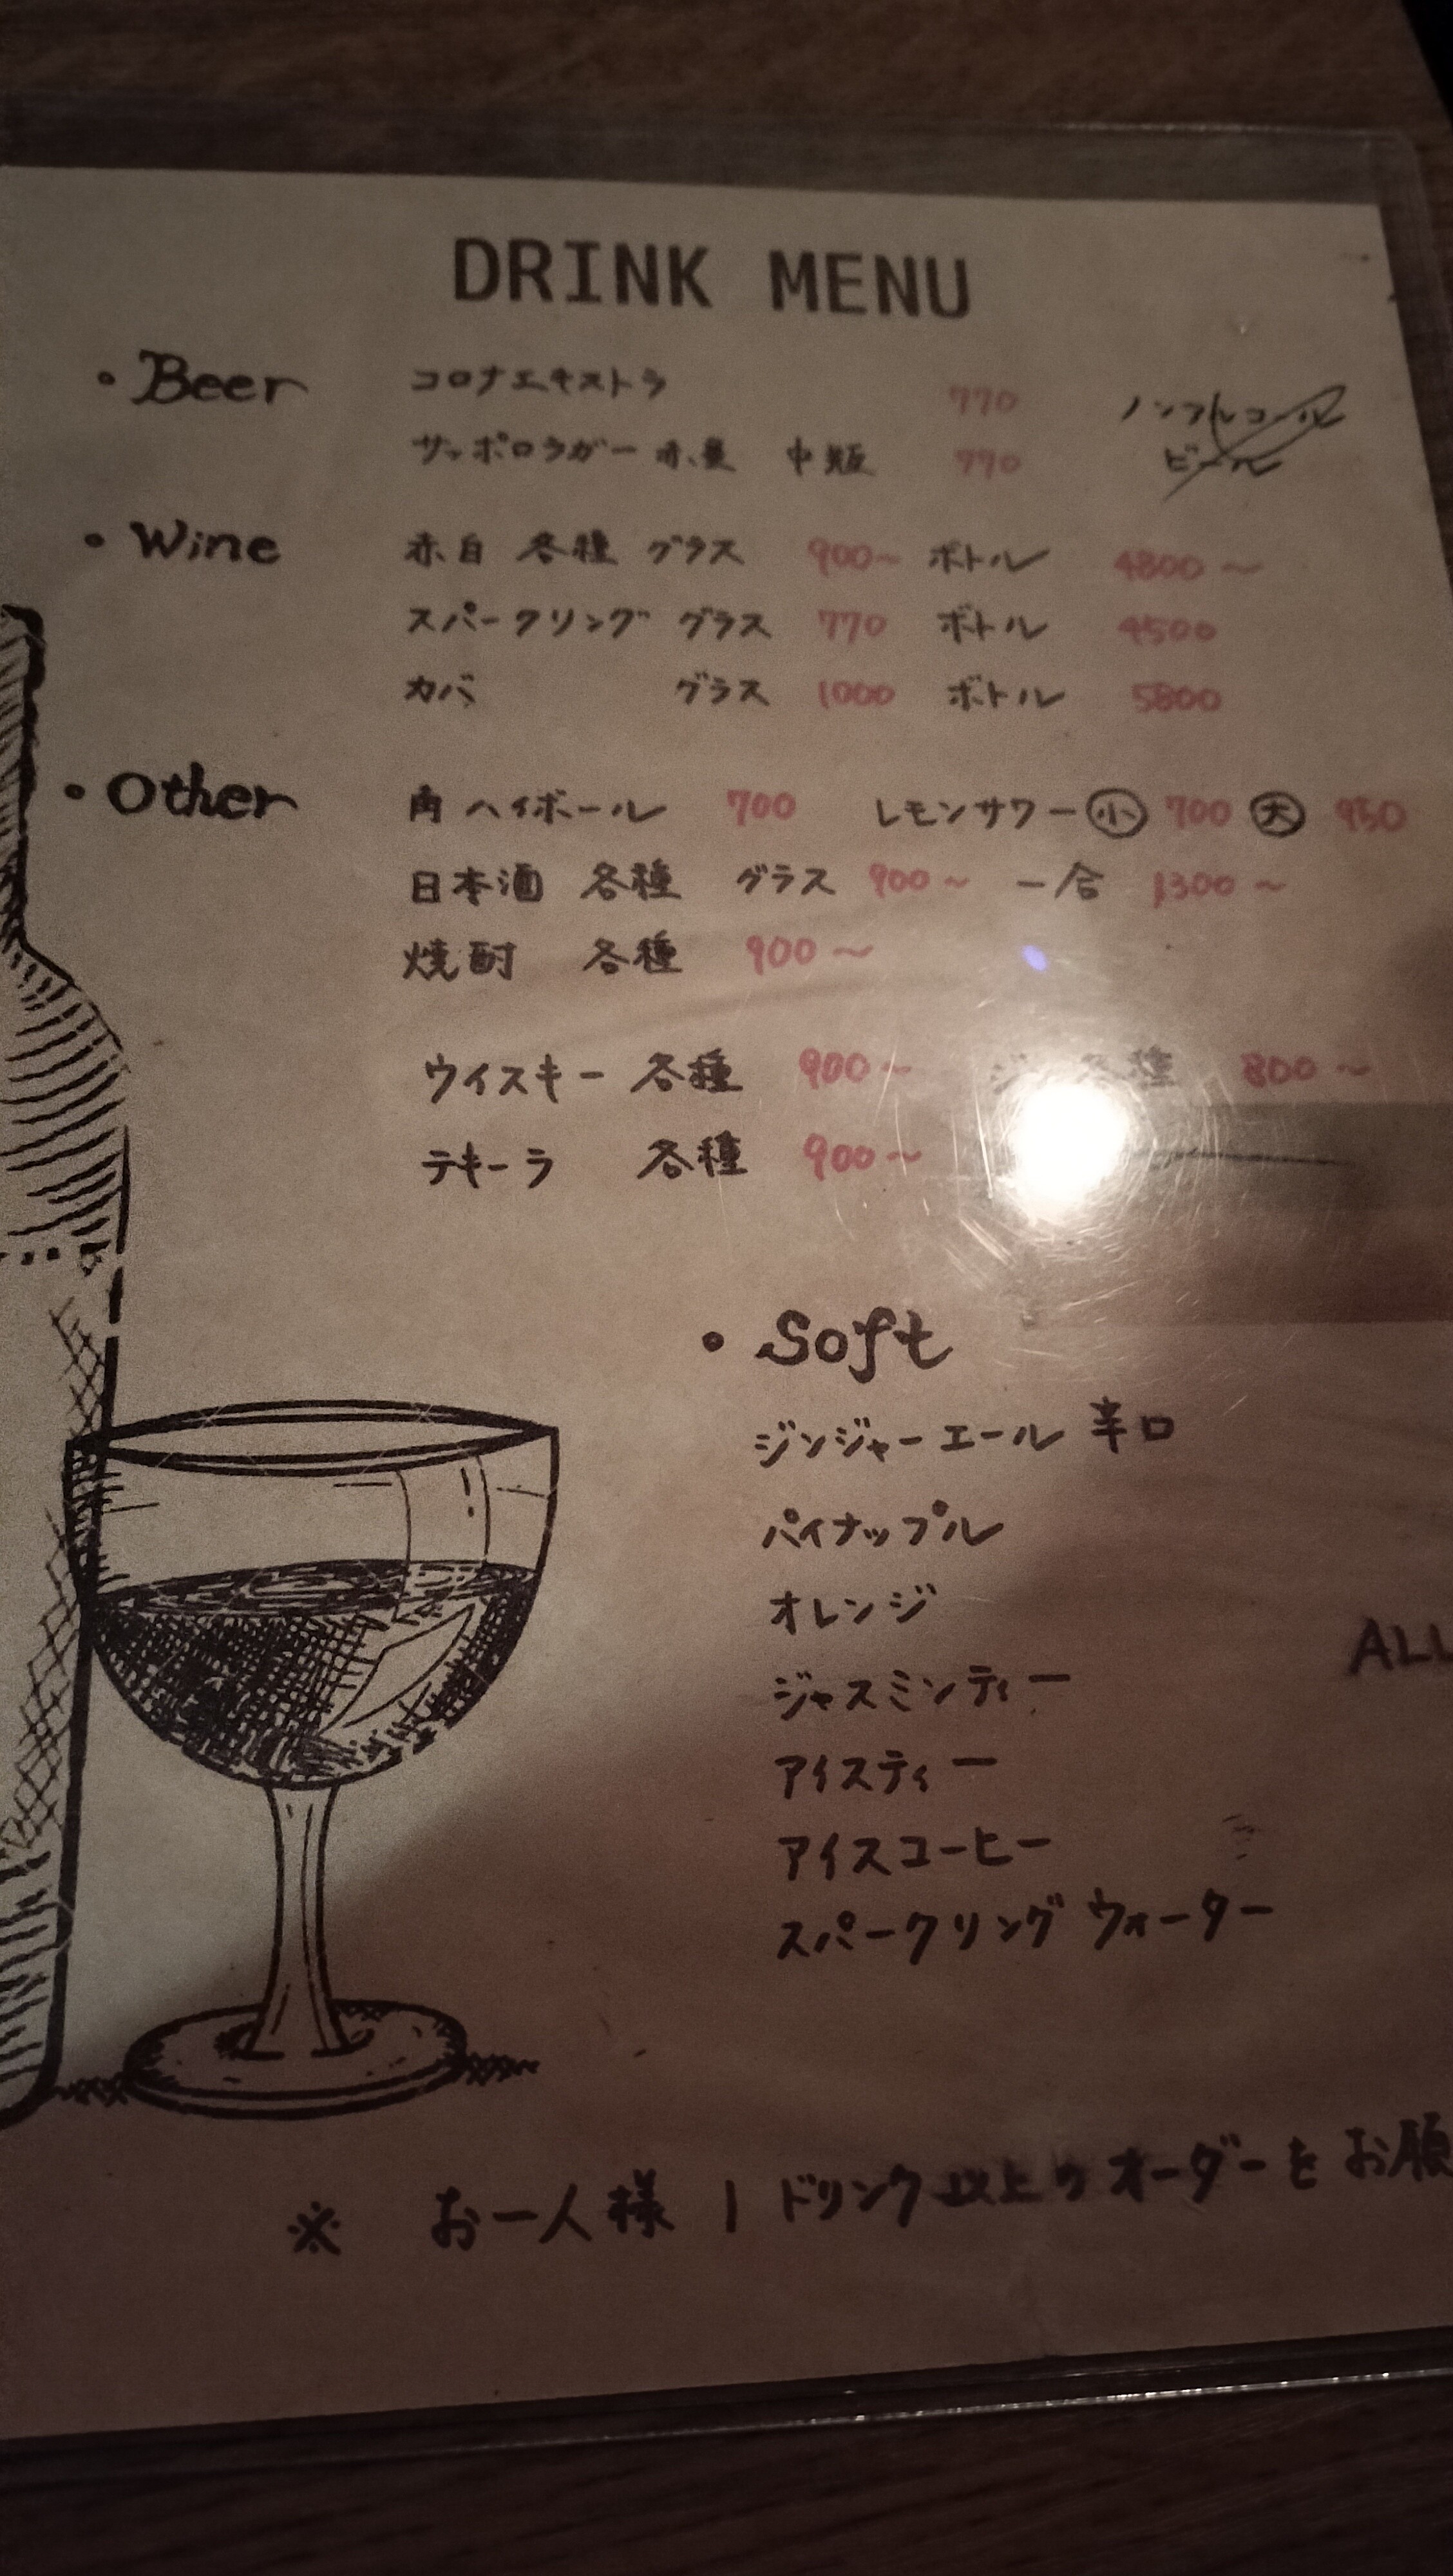 DRINK MENU
・Beer コロナエキストラ 770 ノンアルコール
サッポロラガー 赤星 中瓶 770 ビール
・Wine 赤白 各種 グラス 900~ ボトル 4800~
スパークリング グラス 770 ボトル 4500
カバ グラス 1000 ボトル 5800
・Other 角ハイボール 700 レモンサワー 小 700 大 950
日本酒 各種 グラス 900~ 一合 1300~
焼酎 各種 900~
ウイスキー 各種 900~ 各種 800~
テキーラ 各種 900~
・Soft
ジンジャーエール 辛口
パイナップル
オレンジ
ジャスミンティー
ALL
アイスティー
アイスコーヒー
スパークリングウォーター
※ お一人様 1ドリンク以上のオーダーをお願